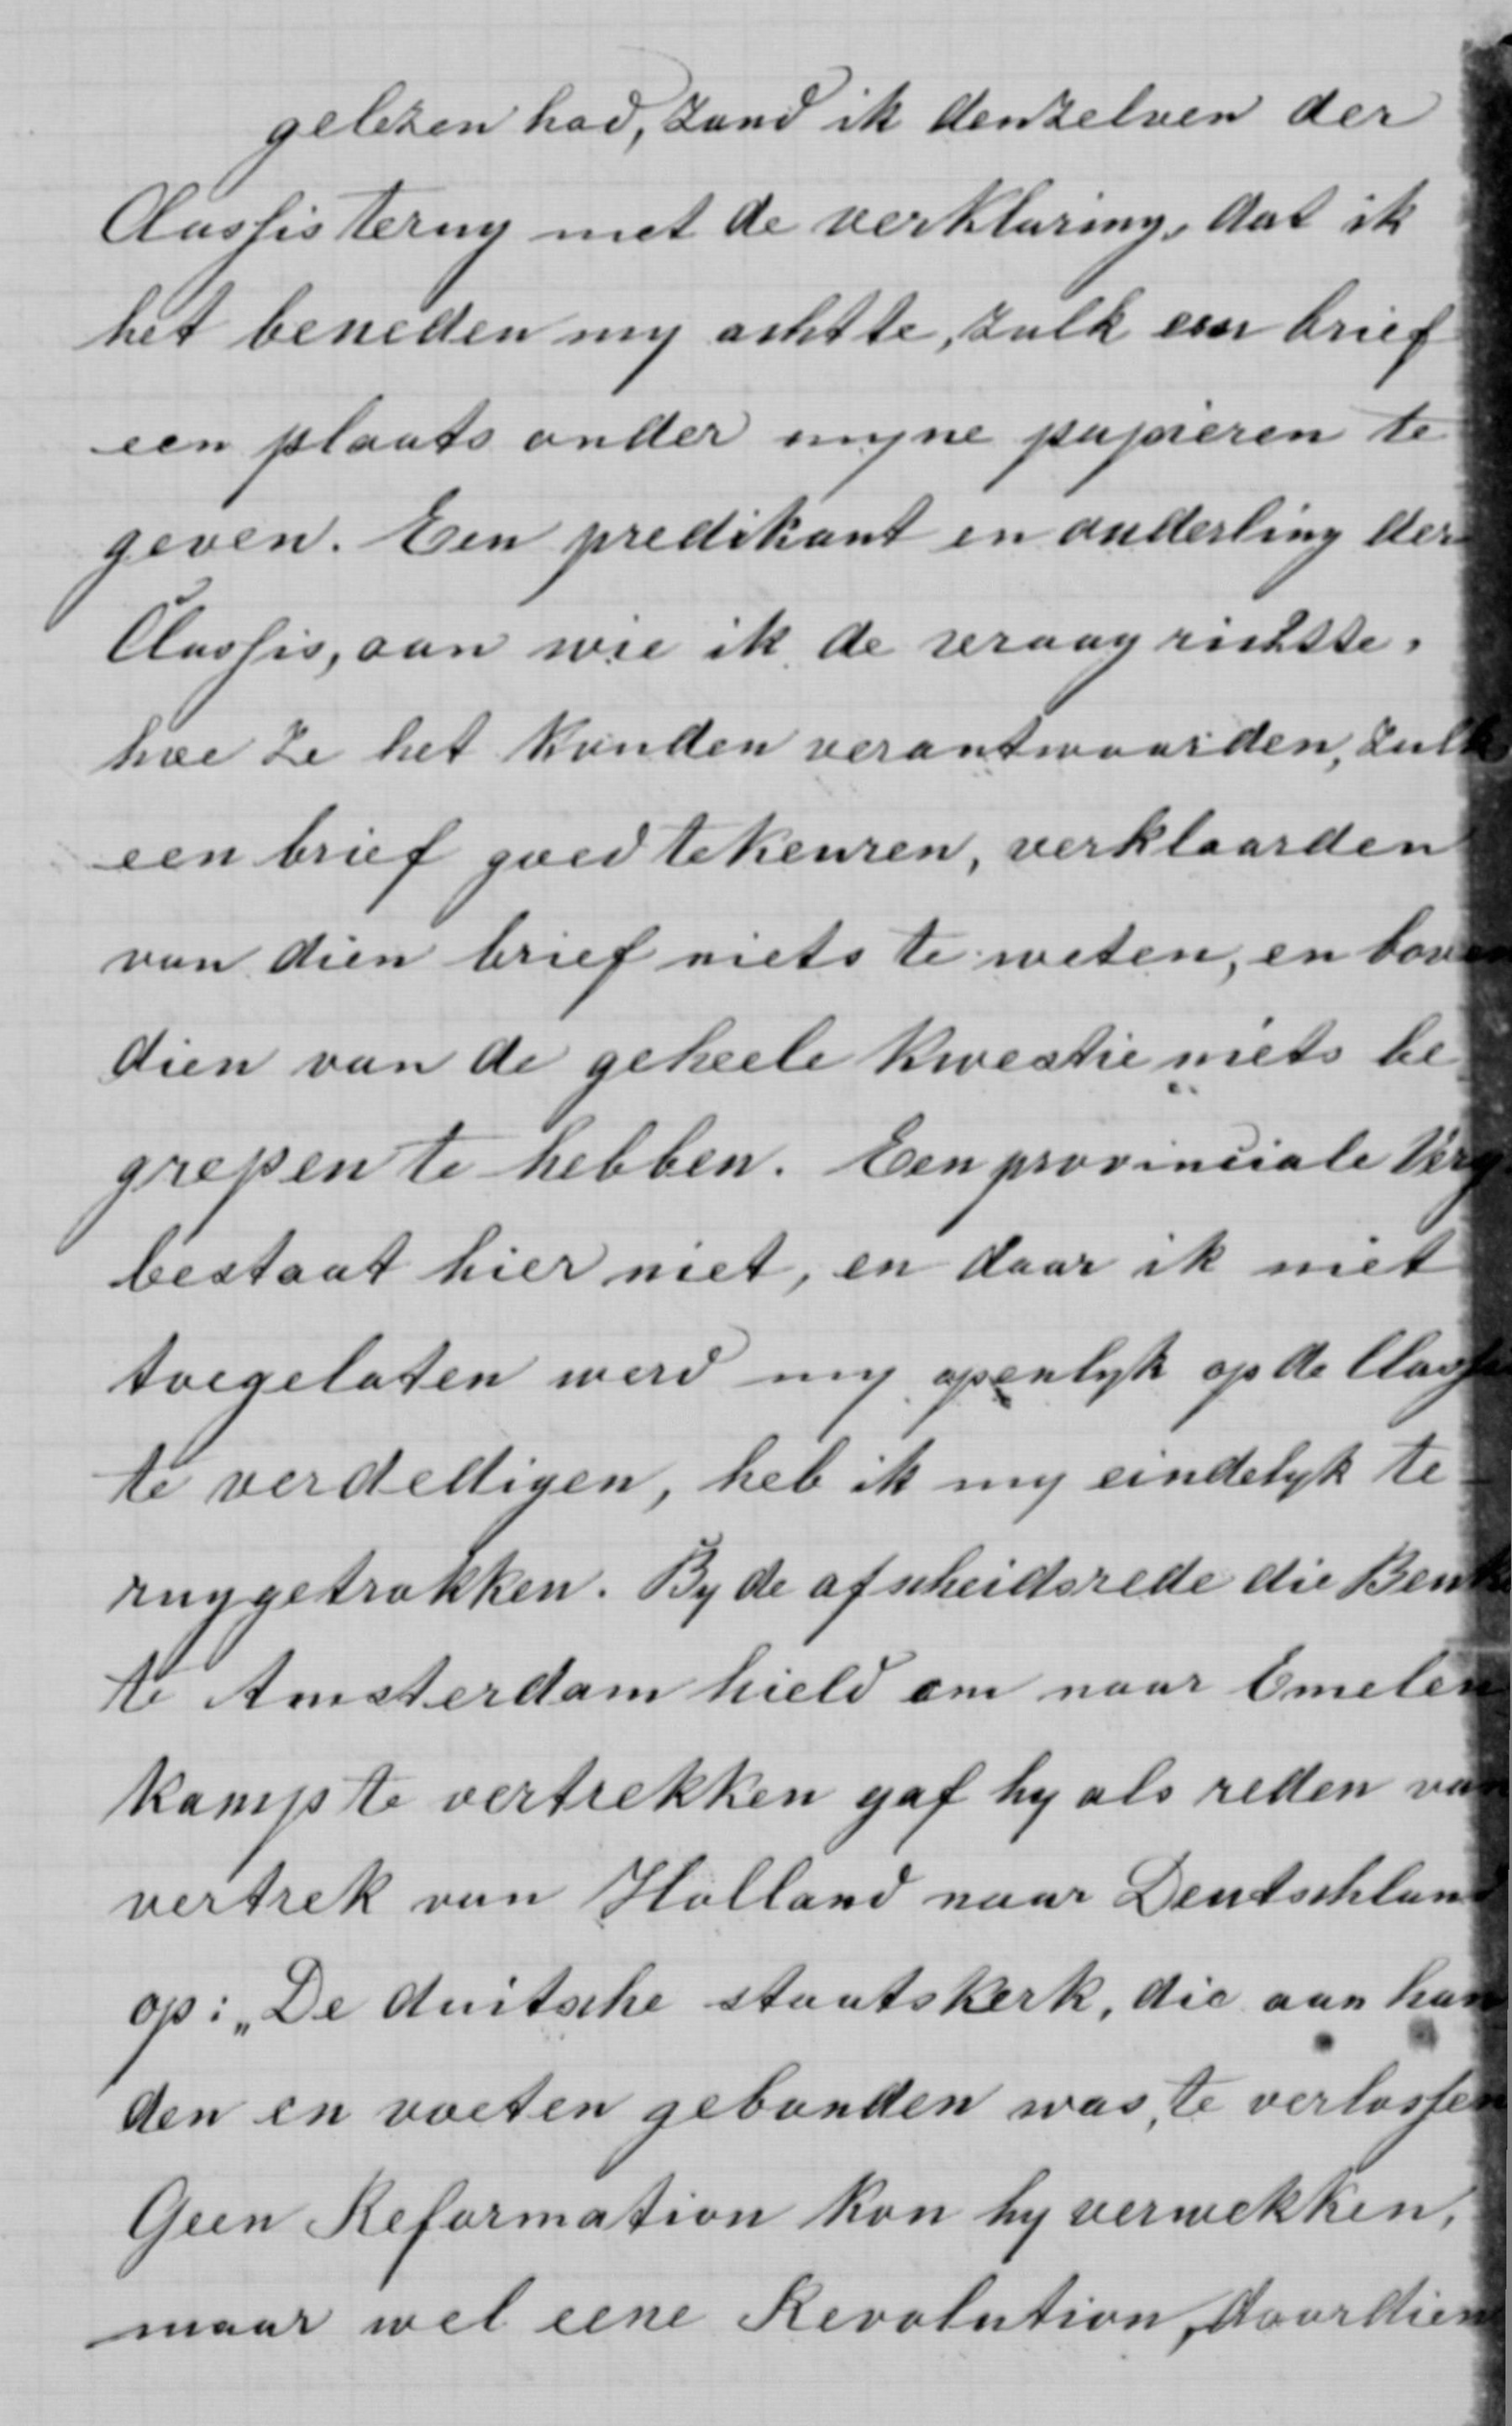 gelezen had, zand ik denzelven der
Classis terug met de verklaring, dat ik
het beneden my achtte, zulk een brief
een plaats onder myne papieren te
geven. Een predikant en ouderling der
Classis, aan wie ik de vraag richtte,
hoe ze het konden verantwoorden, zulk
een brief goed te keuren, verklaarden
van dien brief niets te weten, en boven
dien van de geheele kwestie niets be
grepen te hebben. Een provinciale Verg
bestaat hier niet, en daar ik niet
toegelaten werd my openlyk op de Classis
te verdedigen, heb ik my eindelyk te-
ruggetrokken. By de afscheidsrede die
te Amsterdam hield om naar Emelen
kamp te vertrekken gaf hy als reden van
vertrek van Holland naar Deutschland
op: „De duitsche staatskerk, die aan han
den en voeten gebonden was, te verlossen
Geen Reformation kon hy verwekken,
maar wel eene Revolution, doordien